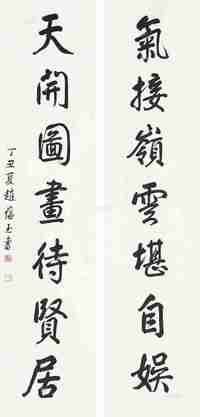 氣接嶺雲堪自娛
天開圖畫待賢居
丁丑夏趙